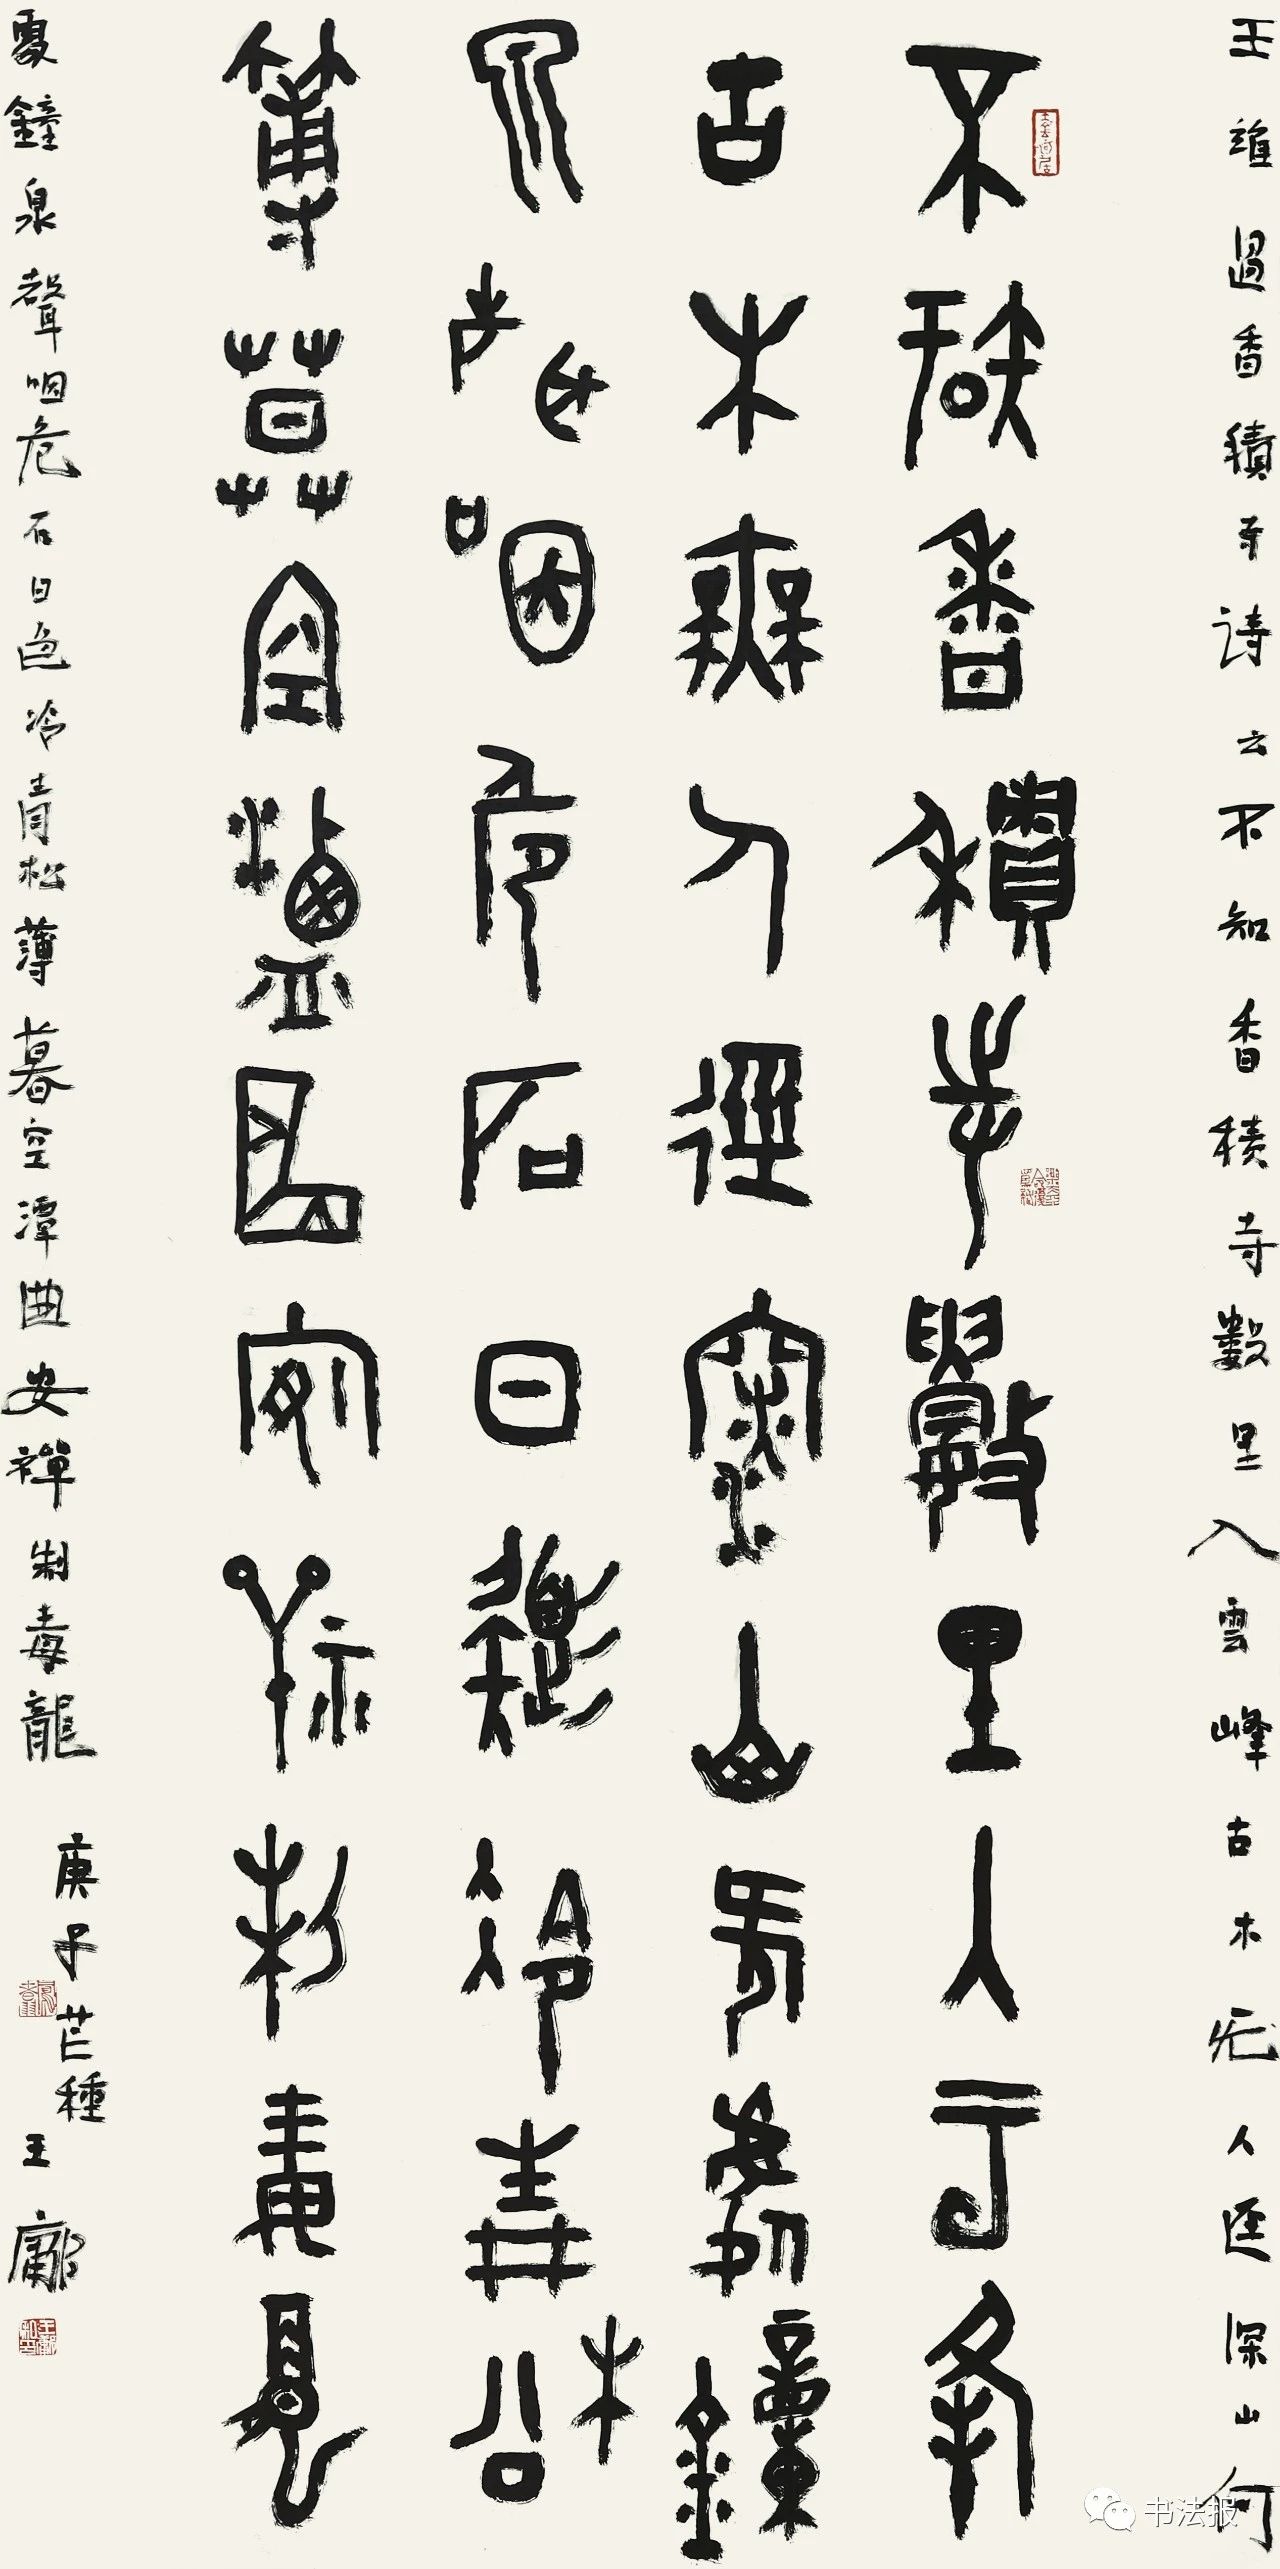 王維過香積寺詩云不知香積寺數里入雲峰古木旡人逕深山何
不知香積寺數里入雲峰
古木無人逕深山何處鐘
泉聲咽危石日色冷青松
薄暮空潭曲安禪制毒龍
處鐘泉聲咽危石日色冷青松薄暮空潭曲安禪制毒龍
庚子芒種王
书法报